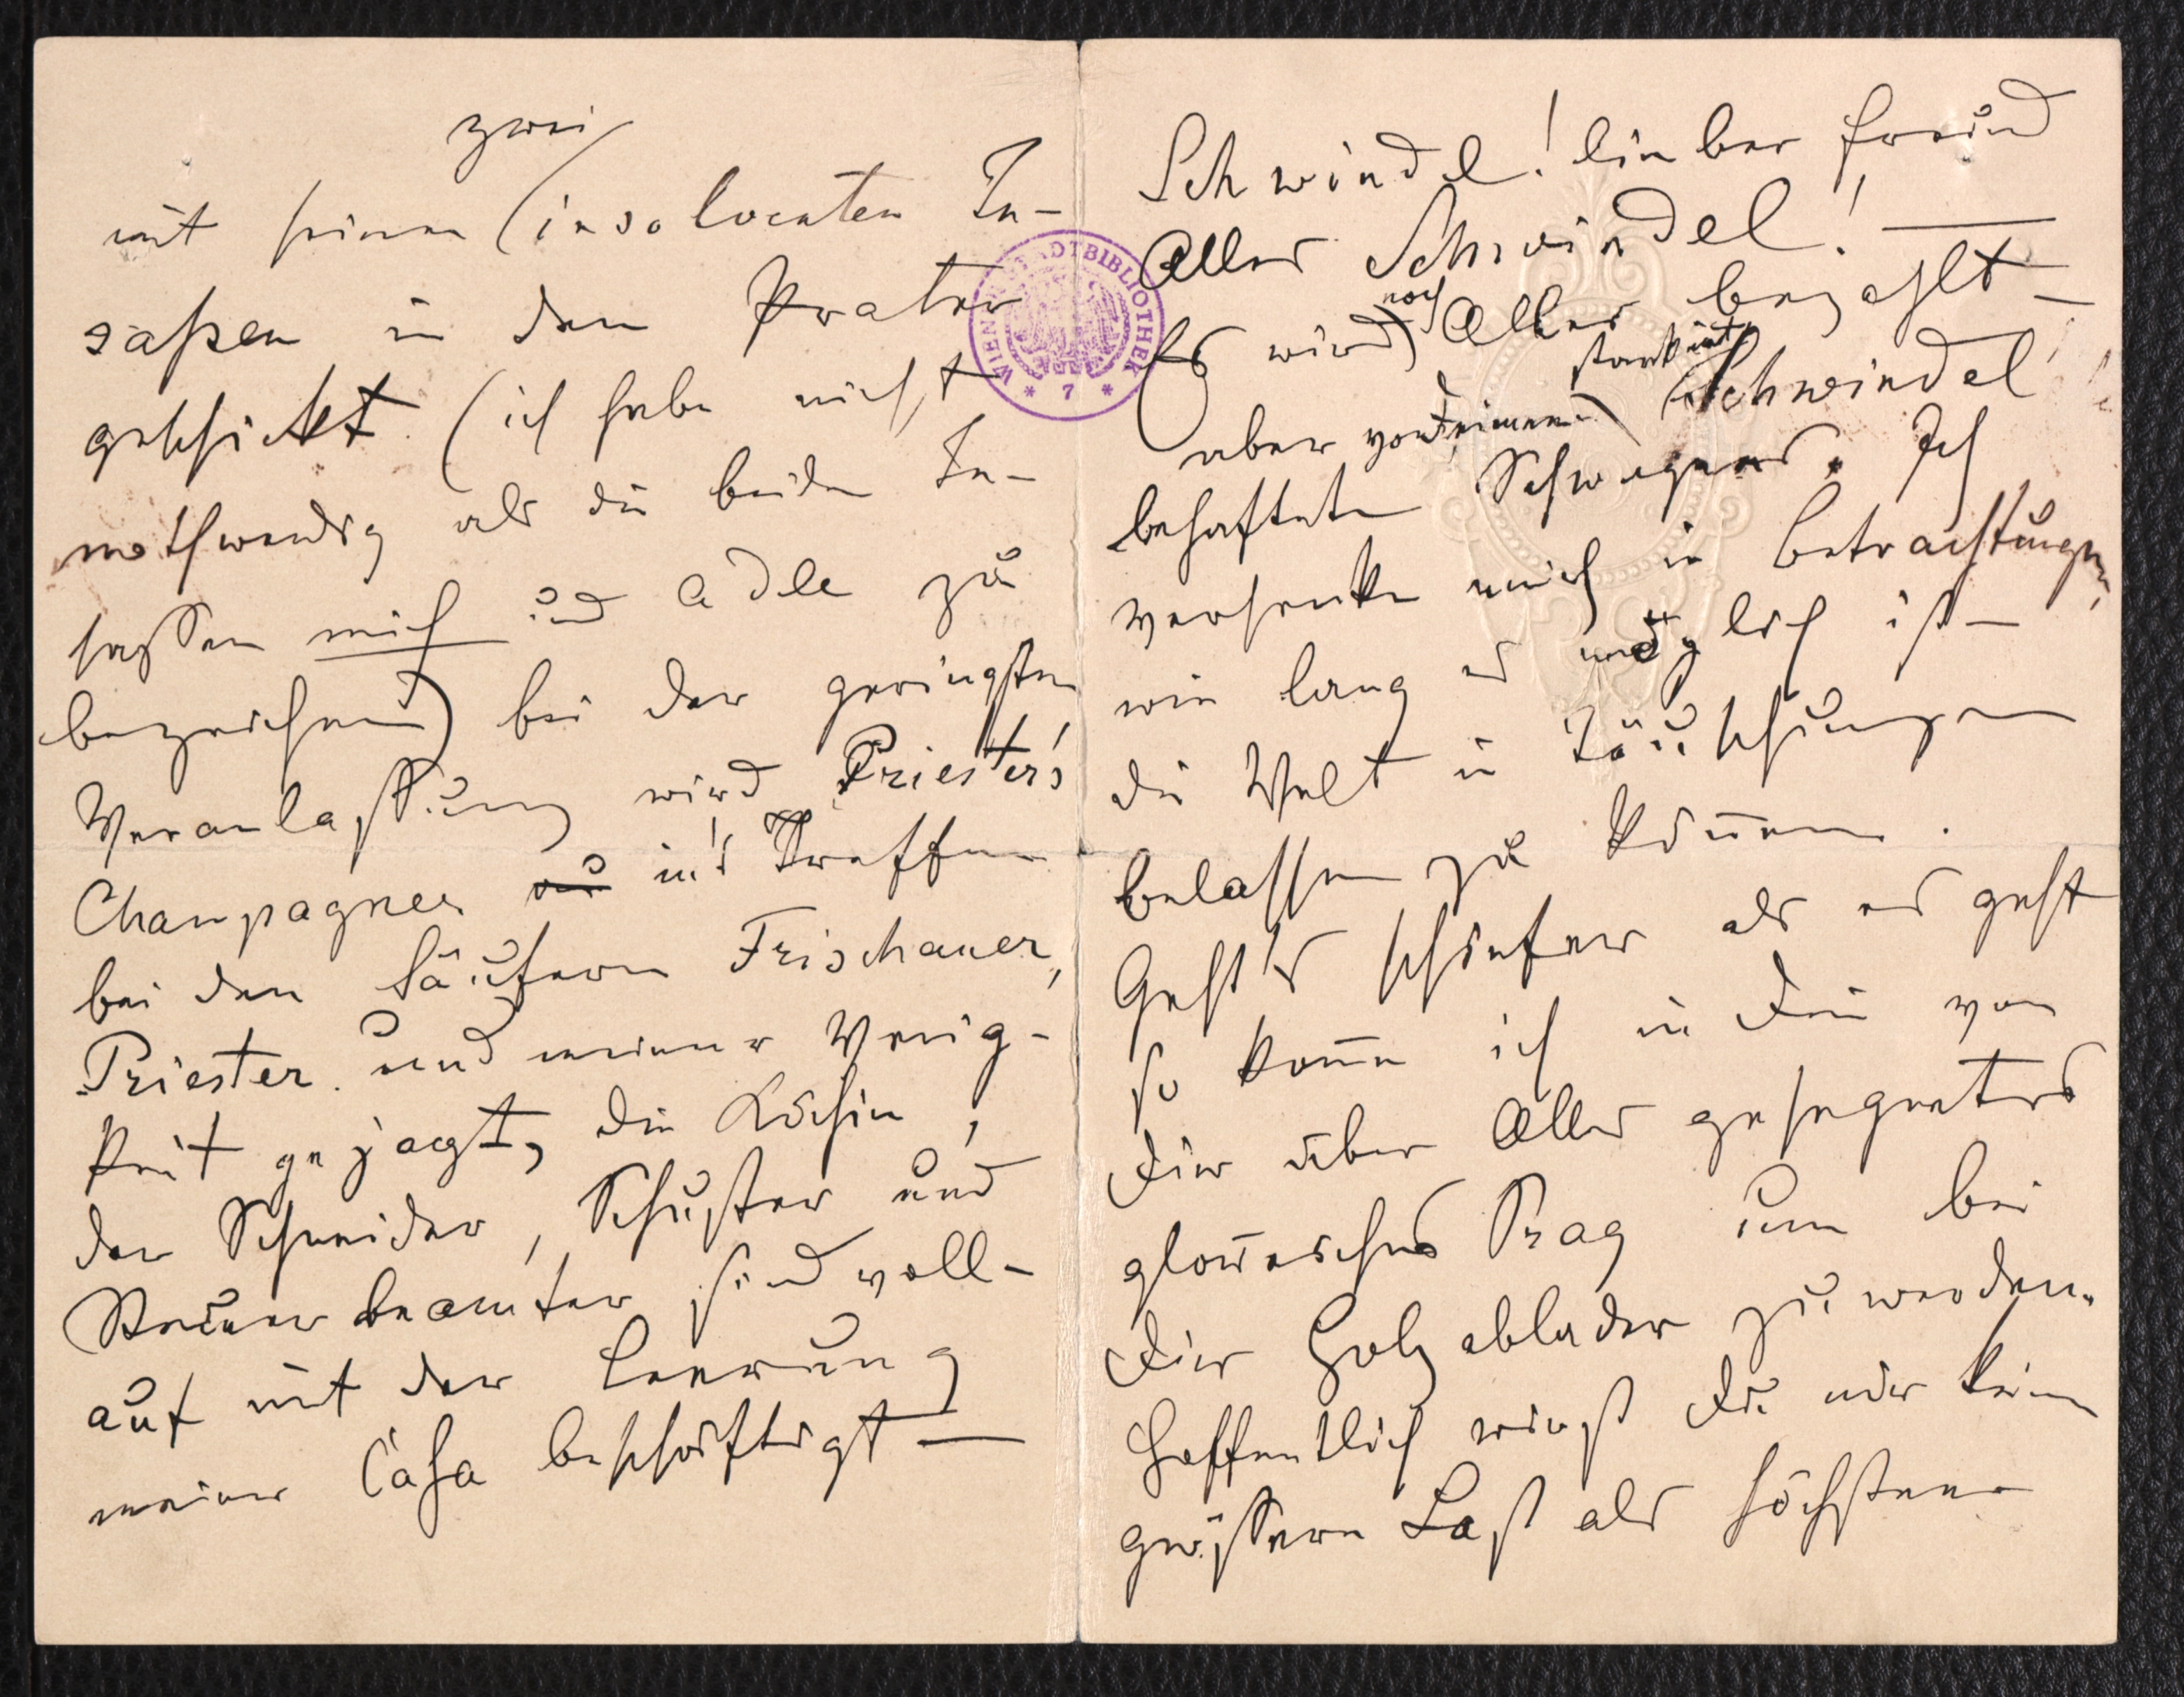 zwei
mit seinen (insolventen In-
saßen in den Prater
geschickt (ich habe nicht
nothwendig als die beiden In-
sassen mich und Adele zu
bezeichnen) bei der geringsten
Veranlassung wird Priester's
Champagner in's Treffen
bei den Säufern Frischauer,
Priester und meiner Wenig-
keit gejagt, die Köchin,
der Schneider, Schuster und
Steuerbeamter sind voll-
auf mit der Leerung
meiner Casa beschäftigt —
Schwindel! lieber Freund
Alles Schwindel! —
noch
Es wird Alles bezahlt —
stark mit
aber von Deinem Schwindel
behafteten Schwager. Ich
versenke mich in Betrachtungen,
wie lang es möglich ist —
die Welt in Täuschungen
belassen zu können.
Geht's schiefer als es geht
so komme ich in Dein von
Dir über Alles gesegnetes
glorreiches Prag um bei
Dir Holzablader zu werden.
Hoffentlich wirst Du mir keine
grössere Last als höchstens
WIENER STADTBIBLIOTHEK
* 7 *